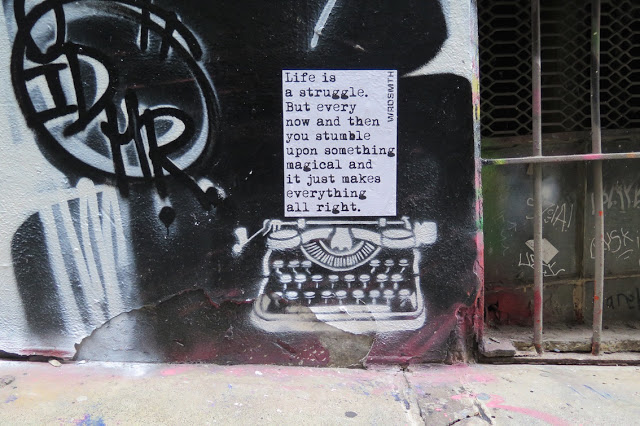 Life is
a struggle.
But every
now and then
you stumble
upon something
magical and
it just makes
everything
all right.
WRDSMTH